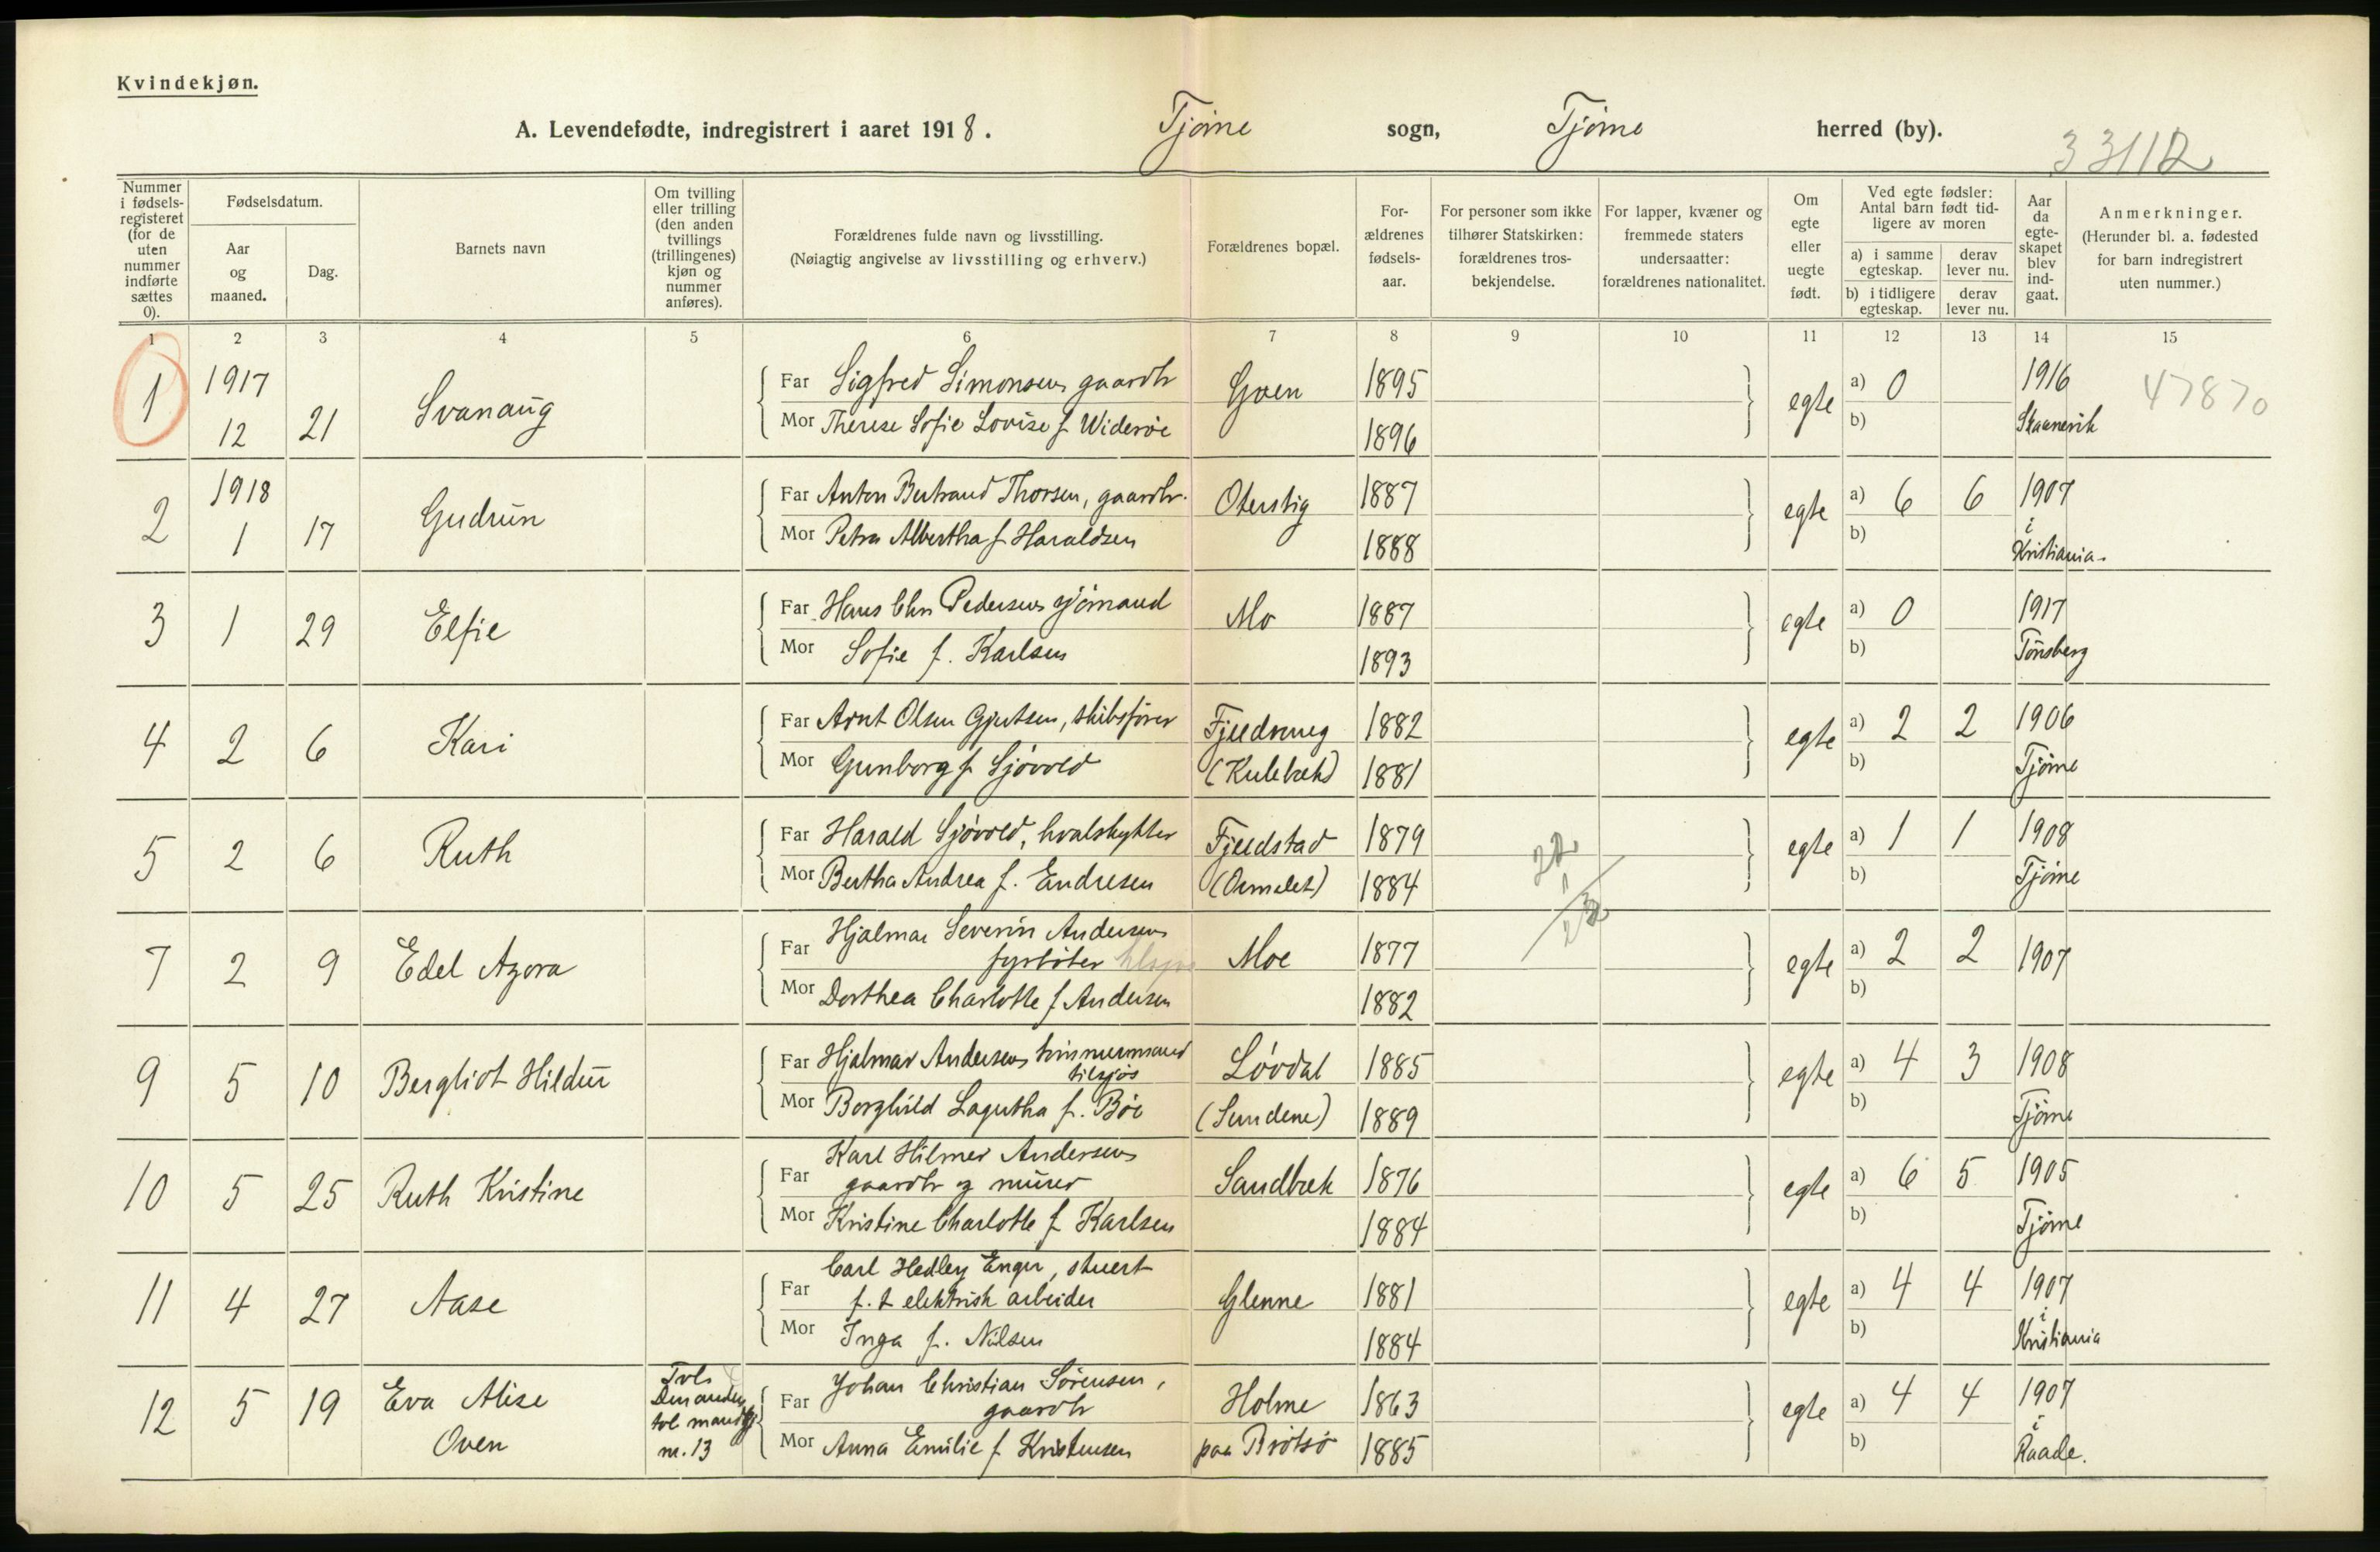 Kvindekjøn.
A. Levendefødte, indregistrert i aaret 1918. Tjøme sogn, Tjøme herred (by).
33112
Nummer i fødselsregisteret (for de uten nummer indførte sættes 0).
Fødselsdatum.
Aar og maaned.
Dag.
Barnets navn
Om tvilling eller trilling (den anden tvillings (trillingenes) kjøn og nummer anføres).
Forældrenes fulde navn og livsstilling.
(Nøiagtig angivelse av livsstilling og erhverv.)
Forældrenes bopæl.
Forældrenes fødselsaar.
For personer som ikke tilhører Statskirken: forældrenes trosbekjendelse.
For lapper, kvæner og fremmede staters undersaatter: forældrenes nationalitet.
Om egte eller uegte født.
Ved egte fødsler: Antal barn født tidligere av moren
a) i samme egteskap.
derav lever nu.
b) i tidligere egteskap.
derav lever nu.
Aar da egteskapet blev indgaat.
Anmerkninger.
(Herunder bl. a. fødested for barn indregistrert uten nummer.)
1 2 3 4 5 6 7 8 9 10 11 12 13 14 15
1 1917 12 21 Svanaug
Far Sigfred Simonsen gaardbr Goen 1895 egte a) 0 1916 47870
Mor Therese Sofie Lovise f Widerøe 1896 b) Skaanevik
2 1918 1 17 Gudrun
Far Anton Bertrand Thorsen, gaardbr. Oterstig 1887 egte a) 6 6 1907
Mor Petra Albertha f Haraldsen 1888 b) i Kristiania.
3 1 29 Elfie
Far Hans Chr Pedersen sjømand Mo 1887 egte a) 0 1917
Mor Sofie f. Karlsen 1893 b) Tønsberg
4 2 6 Kari
Far Arnt Olsen Gjertsen, skibsfører 1882 egte a) 2 2 1906
Mor Gunborg f Sjøvold (Kulebæk) 1881 b) Tjøme
5 2 6 Ruth
Far Harald Sjøvold, hvalskytter Fjeldstad 1879 egte a) 1 1 1908
Mor Bertha Andrea f. Endresen (Ormelet) 1884 b) Tjøme
7 2 9 Edel Azora
Far Hjalmar Severin Andersen
fyrbøter Moe 1877 egte a) 2 2 1907
Mor Dorthea Charlotte f Andersen 1882 b)
9 5 10 Bergliot Hildur
Far Hjalmar Andersen tømmermand
tilsjøs Løvdal 1885 egte a) 4 3 1908
Mor Borghild Lagertha f. Bøe (Sundene) 1889 b) Tjøme
10 5 25 Ruth Kristine
Karl Hilmer Andersen
Far gaardbr og murer Sandbæk 1876 egte a) 6 5 1905
Mor Kristine Charlotte f Karlsen 1884 b) Tjøme
11 4 27 Aase
Carl Hedley Enger, stuert
Far f. t elektrisk arbeider Glenne 1881 egte a) 4 4 1907
Mor Inga f. Nilsen 1884 b) i Kristiania
12 5 19 Eva Alise Oven
Tvl. Den anden tvl mandkj nr. 13
Johan Christian Sørensen,
Far gaardbr Holme 1863 egte a) 4 4 1907
Mor Anna Emilie f Kristensen paa Brøtsø 1885 b) i Raade.